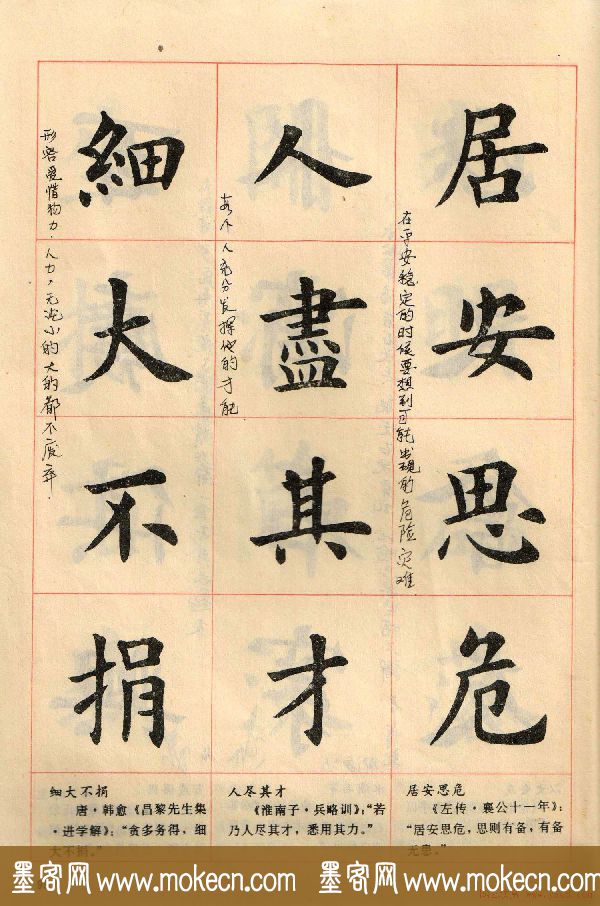 居安思危
在平安稳定的时候要想到可能出现的危险灾难
人盡其才
各个人充分发挥他的才能
細大不捐
形容爱惜物力·人力，无论小的大的都不废弃.
居安思危
《左传·襄公十一年》：
“居安思危，思则有备，有备
无患。”
人尽其才
《淮南子·兵略训》：“若
乃人尽其才，悉用其力。”
细大不捐
唐·韩愈《昌黎先生集
·进学解》：“贪多务得，细
大不捐。”
墨客网 www.mokecn.com 墨客网 www.mokecn.com